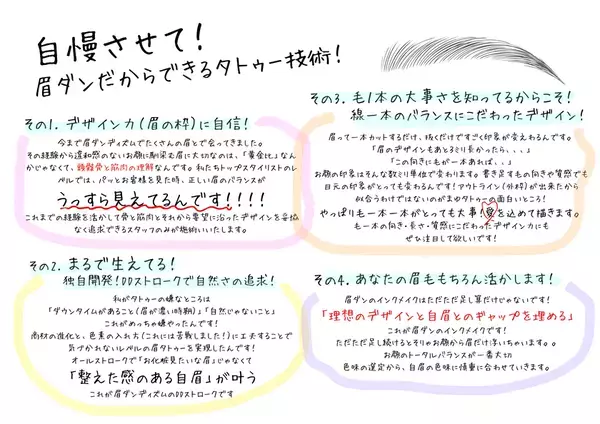 自慢させて!
眉ダンだからできるタトゥー技術!
その1. デザインカ(眉の枠)に自信!
今まで眉ダンディズムでたくさんの眉と出会ってきました。
その経験から違和感のないお顔に馴染む眉に大切なのは、「黄金比」なん
かじゃなくて、頭蓋骨と筋肉の理解なんです。私たちトップスタイリストのレ
ベルでは、パッとお客様を見た時、正しい眉のバランスが
うっすら見えてるんです!!!!
これまでの経験を活かして骨と筋肉とそれから要望に沿ったデザインを妥協
なく追求できるスタッフのみが施術いたします。
その2. まるで生えてる!
独自開発!DDストロークで自然さの追求!
私がタトゥーの嫌なところは
「ダウンタイムがあること(眉が濃い時期)」「自然じゃないこと」
これがめっちゃ嫌やったんです!
商材の進化と、色素の入れ方(これには苦戦しました!)に工夫することで
気づかれないレベルの眉タトゥーを実現したんです!
オールストロークで「お化粧見たいな眉」じゃなくて
「整えた感のある自眉」が叶う
これが眉ダンディズムのDDストロークです
その3. 毛1本の大事さを知ってるからこそ!
線一本のバランスにこだわったデザイン!
眉って一本カットするだけ、抜くだけですごく印象が変わるんです。
「眉のデザインもあと3ミリ長かったら、、、」
「この向きにもが一本あれば、、」
お顔の印象はそんな数ミリ単位で変わります。書き足すもの向きや質感でも
目元の印象がとっても変わるんです!アウトライン(外枠)が出来たから
似合うわけではないのがまゆタトゥーの面白いところ!
やっぱりも一本一本がとっても大事!愛を込めて描きます。
毛一本の向き・長さ・質感にこだわったデザインカにも
ぜひ注目して欲しいです!
その4. あなたの眉ももちろん活かします!
眉ダンのインクメイクはただただ足し算だけじゃないです!
「理想のデザインと自眉とのギャップを埋める」
これが眉ダンのインクメイクです!
ただただ足し続けるとそりゃお顔から眉だけ浮いちゃいます。。
お顔のトータルバランスが一番大切
色味の選定から、自眉の色味に慎重に合わせていきます。